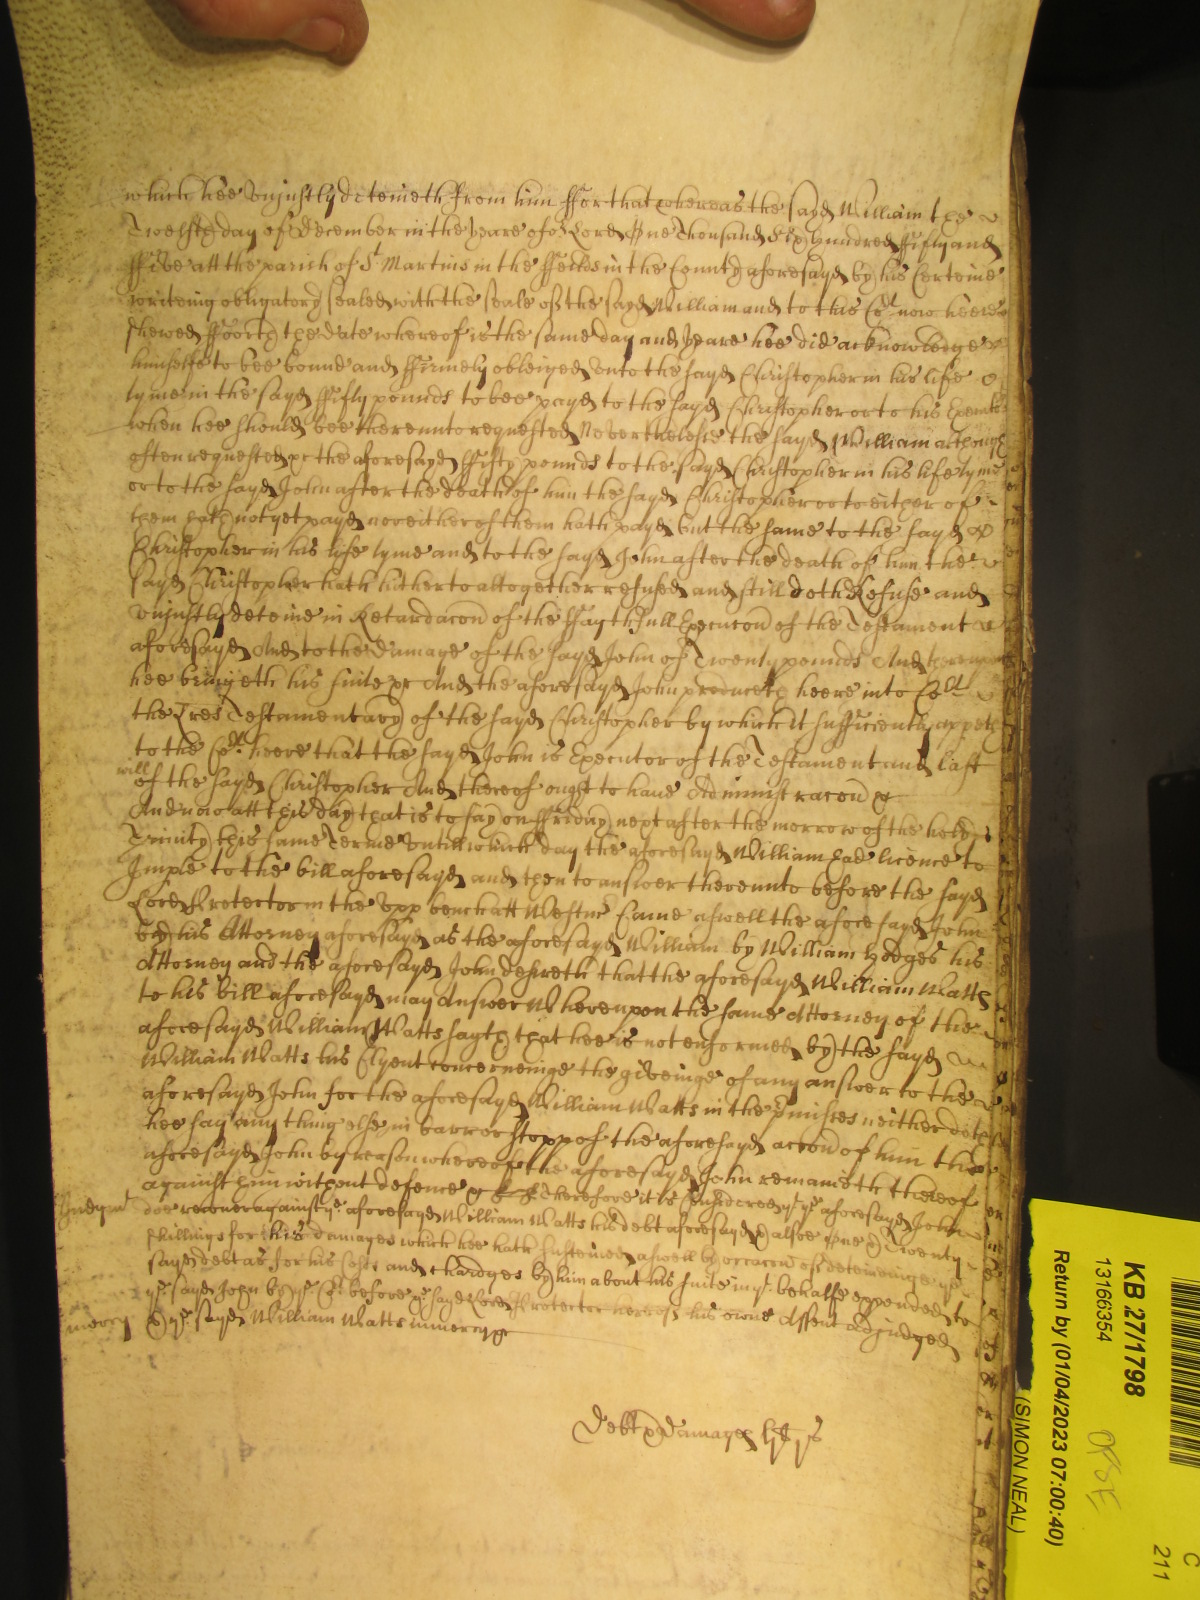 which hee Vnjustly deteineth from him ffor that whereas the sayd William the
Twelfth day of December in the yeare of or Lord One Thousand Six hundred ffifty and
ffive att the parish of St Martins in the ffeilds in the County aforesayd by his Certeine
writeing obligatory sealed with the seale of the sayd William and to this Cot now heere
shewed ffoorth the date whereof is the same day and yeare hee did acknowledge
himselfe to bee bound and ffirmely obleiged vnto the sayd Christopher in his life
tyme in the sayd ffifty pounds to bee payd to the sayd Christopher or to his
when hee should bee therevnto requested Neverthelesse the sayd William although
often requested &c the aforesayd ffifty pounds to the sayd Christopher in his life tyme
or to the sayd John after the death of him the sayd Christopher or to either of
them hath not yet payd nor either of them hath payd but the same to the sayd
Christopher in his life tyme and to the sayd John after the death of him the
sayd Christopher hath hitherto altogether refused and still doth Refuse and
vnjustly deteine in Retardacon of the ffaythfull Execucon of the Testament
aforesayd And to the damage of the sayd John of Twenty pounds And thereupon
hee bringeth his suite &c And the aforesayd John produceth heere into Cot
the Lres Testamentary of the sayd Christopher by which it sufficiently
to the Cot heere that the sayd John is Executor of the Testament and last
will
of the sayd Christopher And thereof ought to have Administracon &c
And now att this day that is to say on ffriday next after the morrow of the holy
Trinity this same Terme vntill which day the aforesayd William had licence to
Imple to the bill aforesayd and then to answer therevnto before the sayd
Lord Protector in the Vpp bench att Westmr Came aswell the aforesayd John
by his Attorney aforesayd as the aforesayd William by William Hodges his
Attorney and the aforesayd John desireth that the aforesayd William Watts
to his bill aforesayd may Answer Wherevpon the same Attorney of the
aforesayd William Watts sayth that hee is not enformed by the sayd
William Watts his Clyent concerneinge the giveinge of any answer to the
aforesayd John for the aforesayd William Watts in the pmisses neither doth
hee say any thing else in barr or stopp of the aforesayd accon of him the
aforesayd John by reason whereof the aforesayd John remaineth thereof
against him without defence &c Therefore it is Considered yt ye aforesayd John
Judgmt
doe recover against ye aforesayd William Watts his debt aforesayd & alsoe One & Twenty
shillings for his damages which hee hath susteined aswell by occacon of deteineinge ye
sayd debt as for his Costs and Chardges by him about his suite in yt behalfe expended to
ye sayd John by ye Cot before ye sayd Lord Protector heere of his owne Assent adjudged
mercy
& ye sayd William Watts in mercy &c
Debt & damages
KB 27/1798
13166354
Return by (01/04/2023 07:00:40)
(SIMON NEAL)
C
211